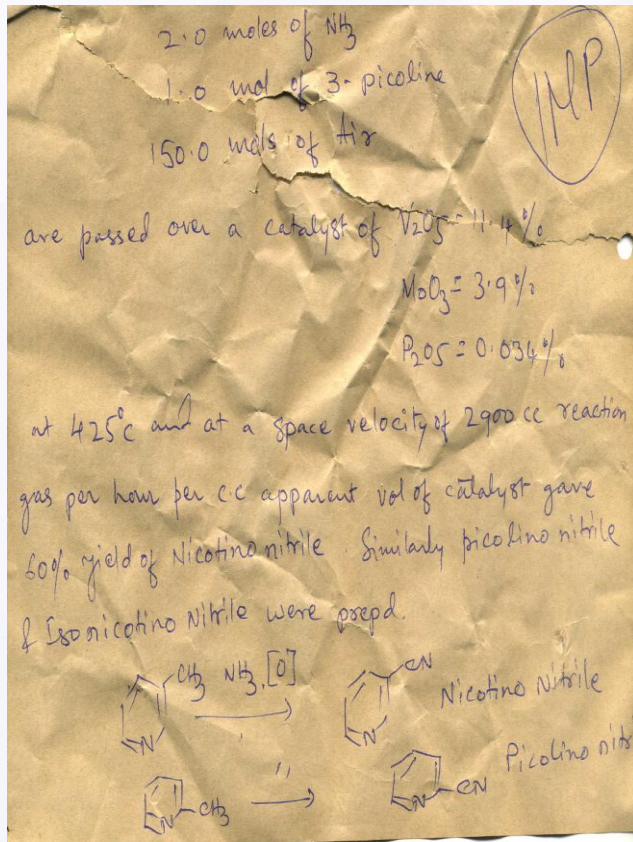 2.0 moles of NH3
1.0 mol of 3-picoline
IMP
150.0 mols of Air
are passed over a catalyst of V2O5 = 11.4%
MoO3 = 3.9%
P2O5 = 0.034%
at 425°C and at a space velocity of 2900 cc reaction
gas per hour per c.c apparent vol of catalyst gave
60% yield of Nicotino nitrile. Similarly picolino nitrile
& Isonicotino Nitrile were prepd.
CH3 NH3, [O] CN
N N Nicotino Nitrile
N CH3 " N CN Picolino nitr